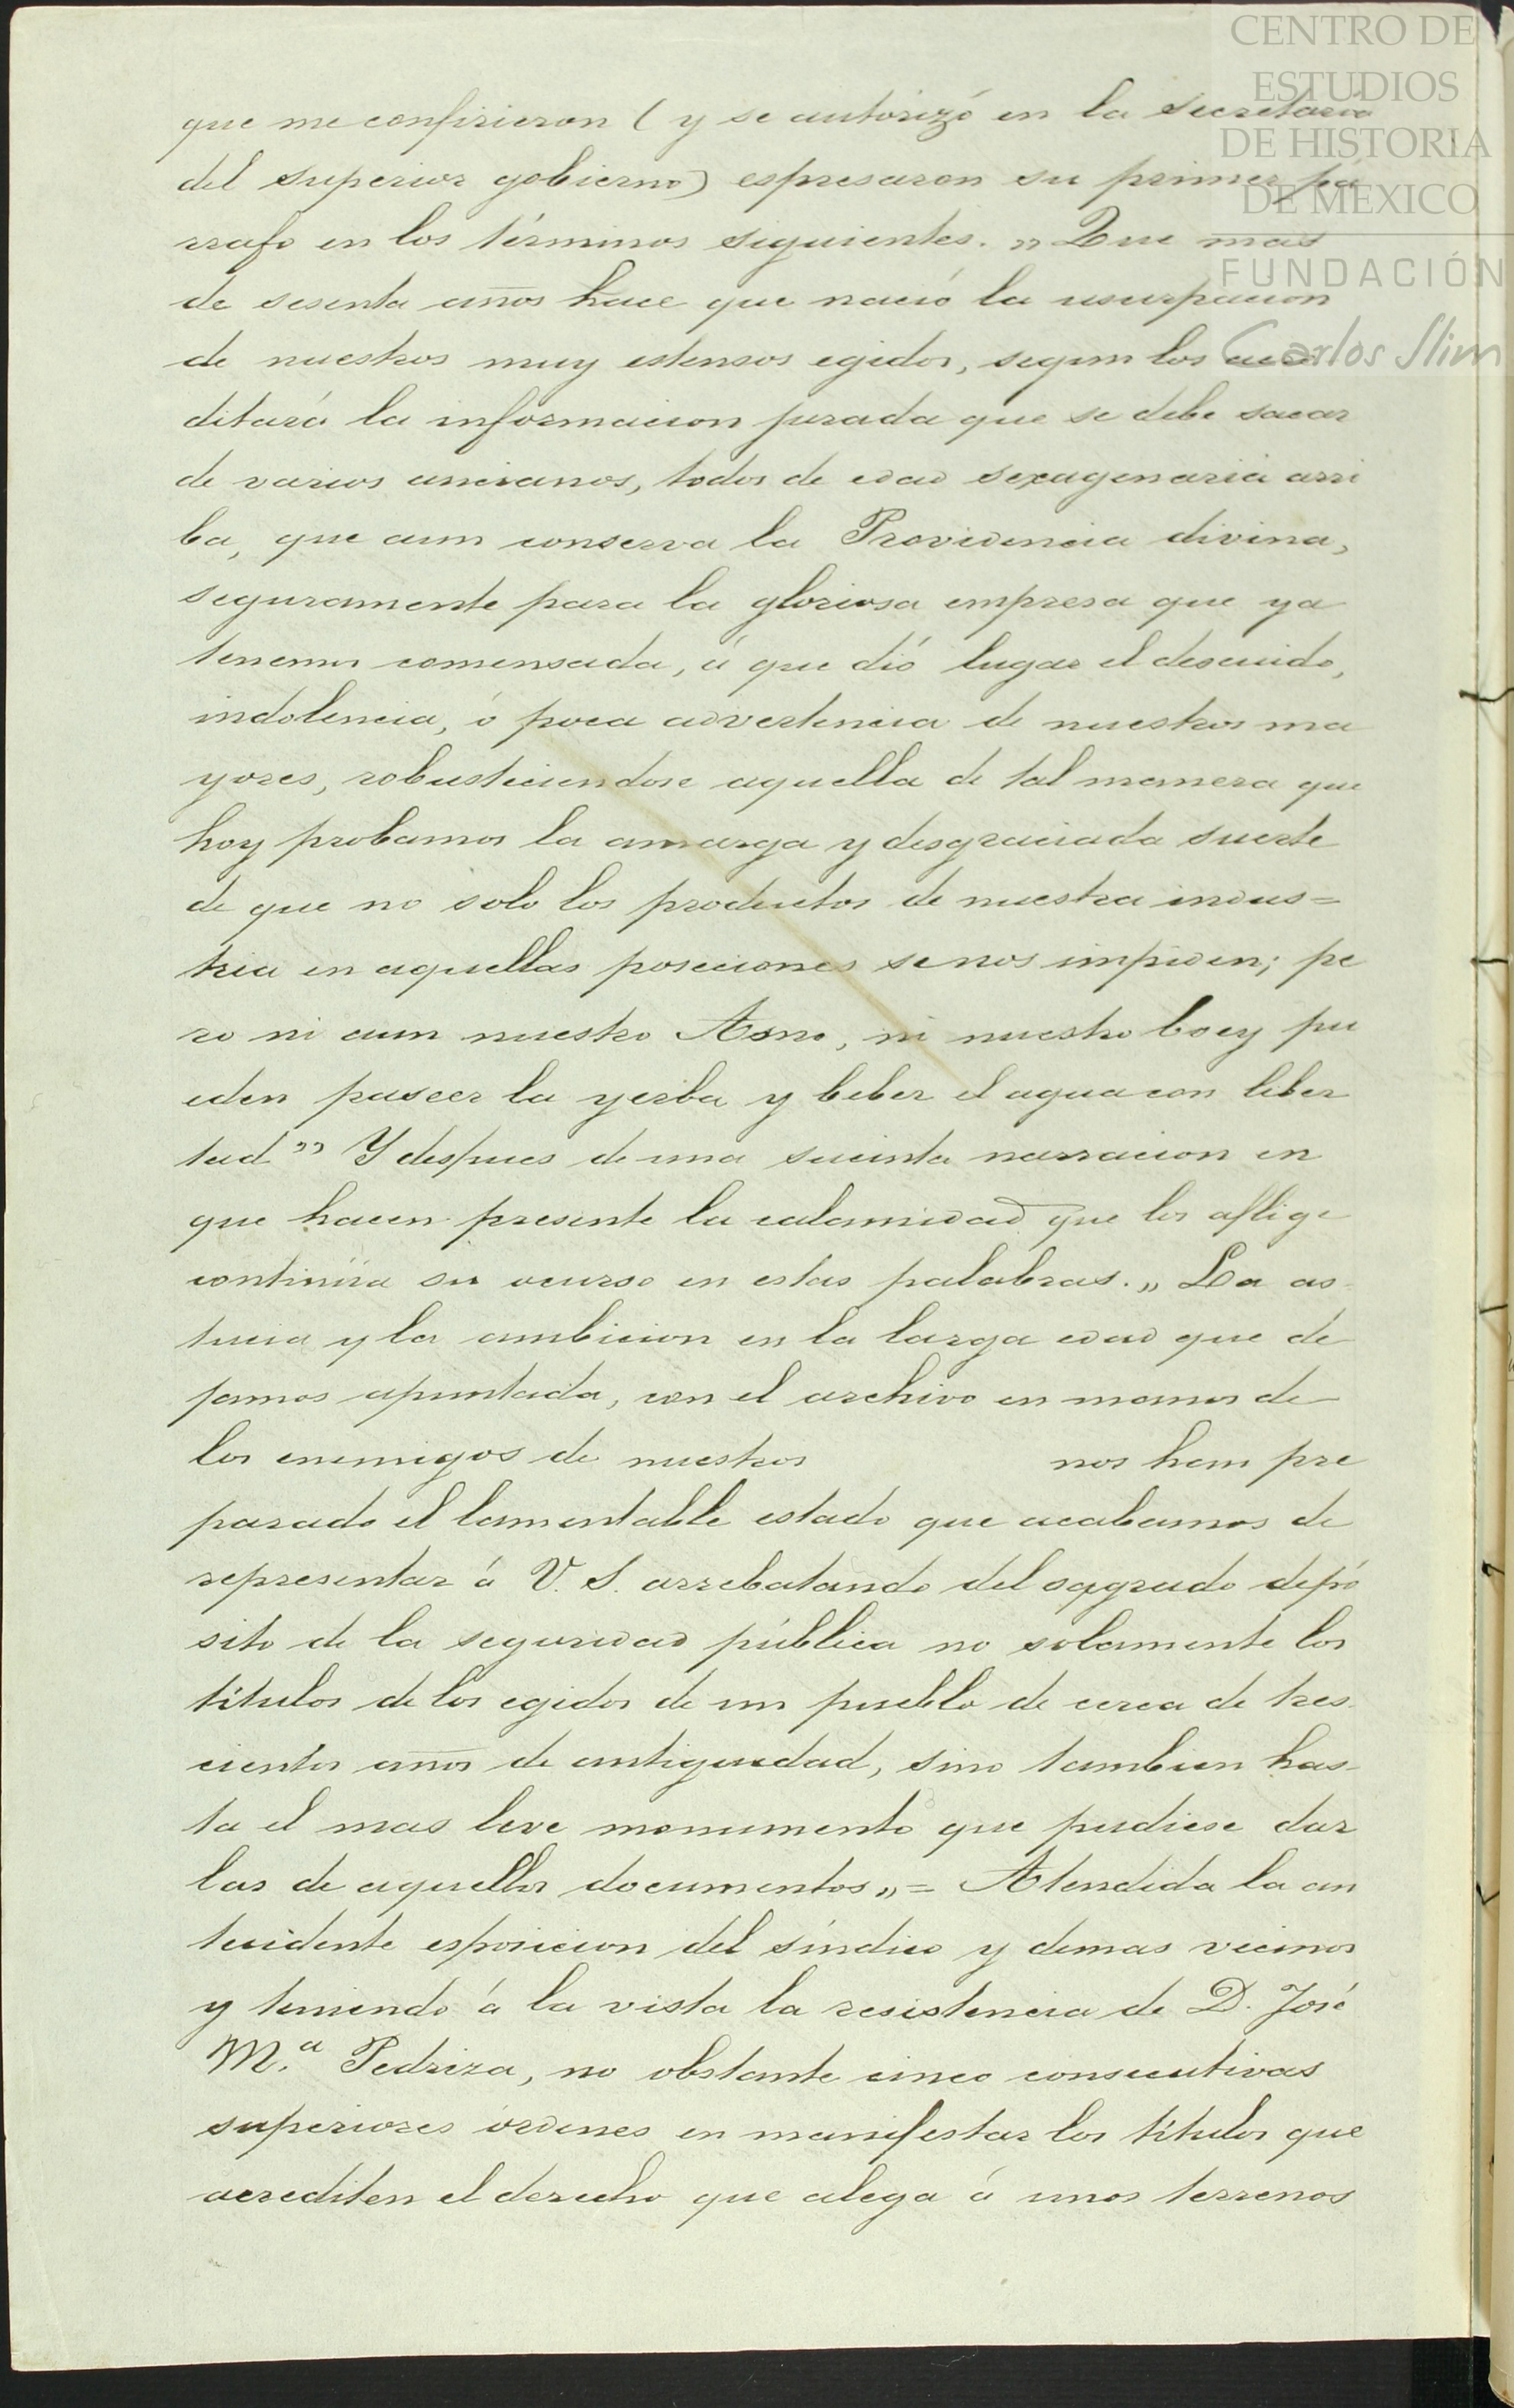 CENTRO DE
ESTUDIOS
DE HISTORIA
DE MÉXICO
FUNDACIÓN
Carlos Slim
que me confirieron ( y se autorizó en la secretaria
del superior gobierno) espresaron su primer pá
rrafo en los términos siguientes. „ Que mas
de sesenta años hace que nació la usurpacion
de nuestros muy estensos egidos, segun los acre
ditará la informacion jurada que se debe sacar
de varios ancianos, todos de edad sexagenaria arri
ba, que aun conserva la Providencia divina,
seguramente para la gloriosa empresa que ya
tenemos comensada, á que dió lugar el descuido,
indolencia, ó poca advertencia de nuestros ma
yores, robusteciendose aquella de tal manera que
hoy probamos la amarga y desgraciada suerte
de que no solo los productos de nuestra indus=
tria en aquellas poseciones se nos impiden; pe
ro ni aun nuestro Asno, ni nuestro boey pu
eden pascer la yerba y beber el agua con liber
tad ” Y despues de una sucinta narracion en
que hacen presente la calamidad que los aflige
continúa su ocurso en estas palabras. „ La as
tucia y la ambicion en la larga edad que de
jamos apuntada, con el archivo en manos de
los enemigos de nuestros nos han pre
parado el lamentable estado que acabamos de
representar á V. S. arrebatando del sagrado depó
sito de la seguridad pública no solamente los
titulos de los egidos de un pueblo de cerca de tres
cientos años de antiguedad, sino tambien has-
ta el mas leve monumento que pudiese dar
las de aquellos documentos „ = Atendida la an
tecidente esposicion del síndico y demas vecinos
y teniendo á la vista la resistencia de D. José
M.ª Pedriza, no obstante cinco consecutivas
superiores órdenes en manifestar los titulos que
acrediten el derecho que alega á unos terrenos